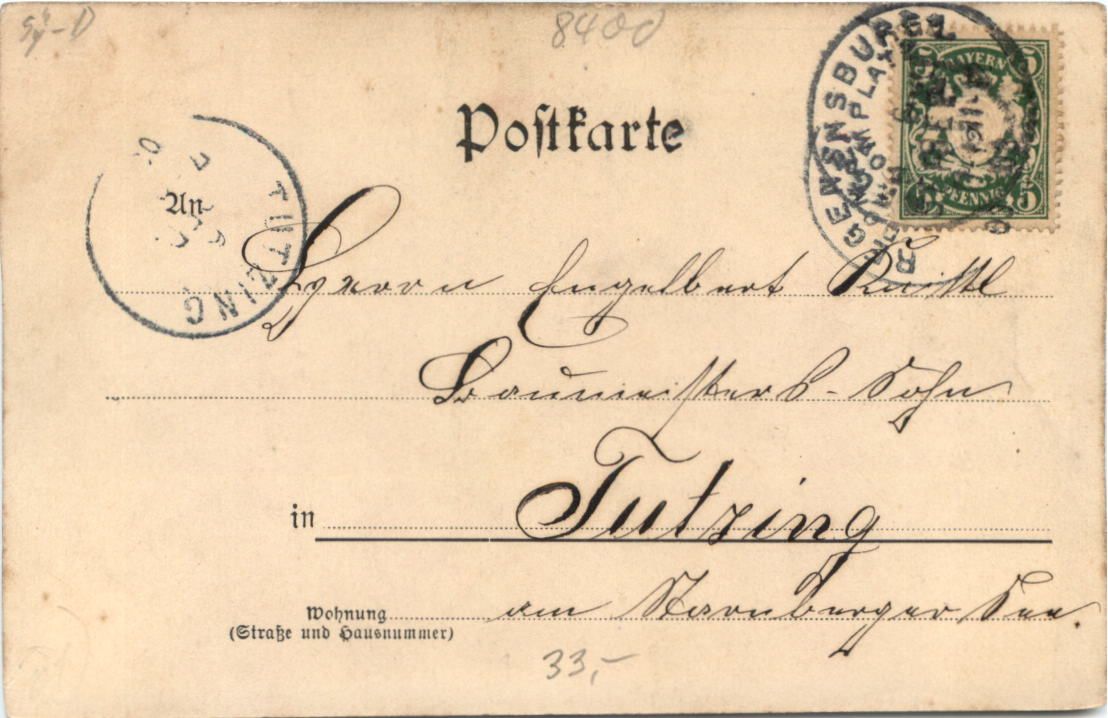 8400
Postkarte
REGENSBURG 2.
DOMPLATZ
BAYERN
5 5
5 PFENNIG 5
An
TUTZING
Herrn Engelbert Knittl
Baumeisters-Sohn
in Tutzing
Wohnung am Starnberger See.
(Straße und Hausnummer)
33,-